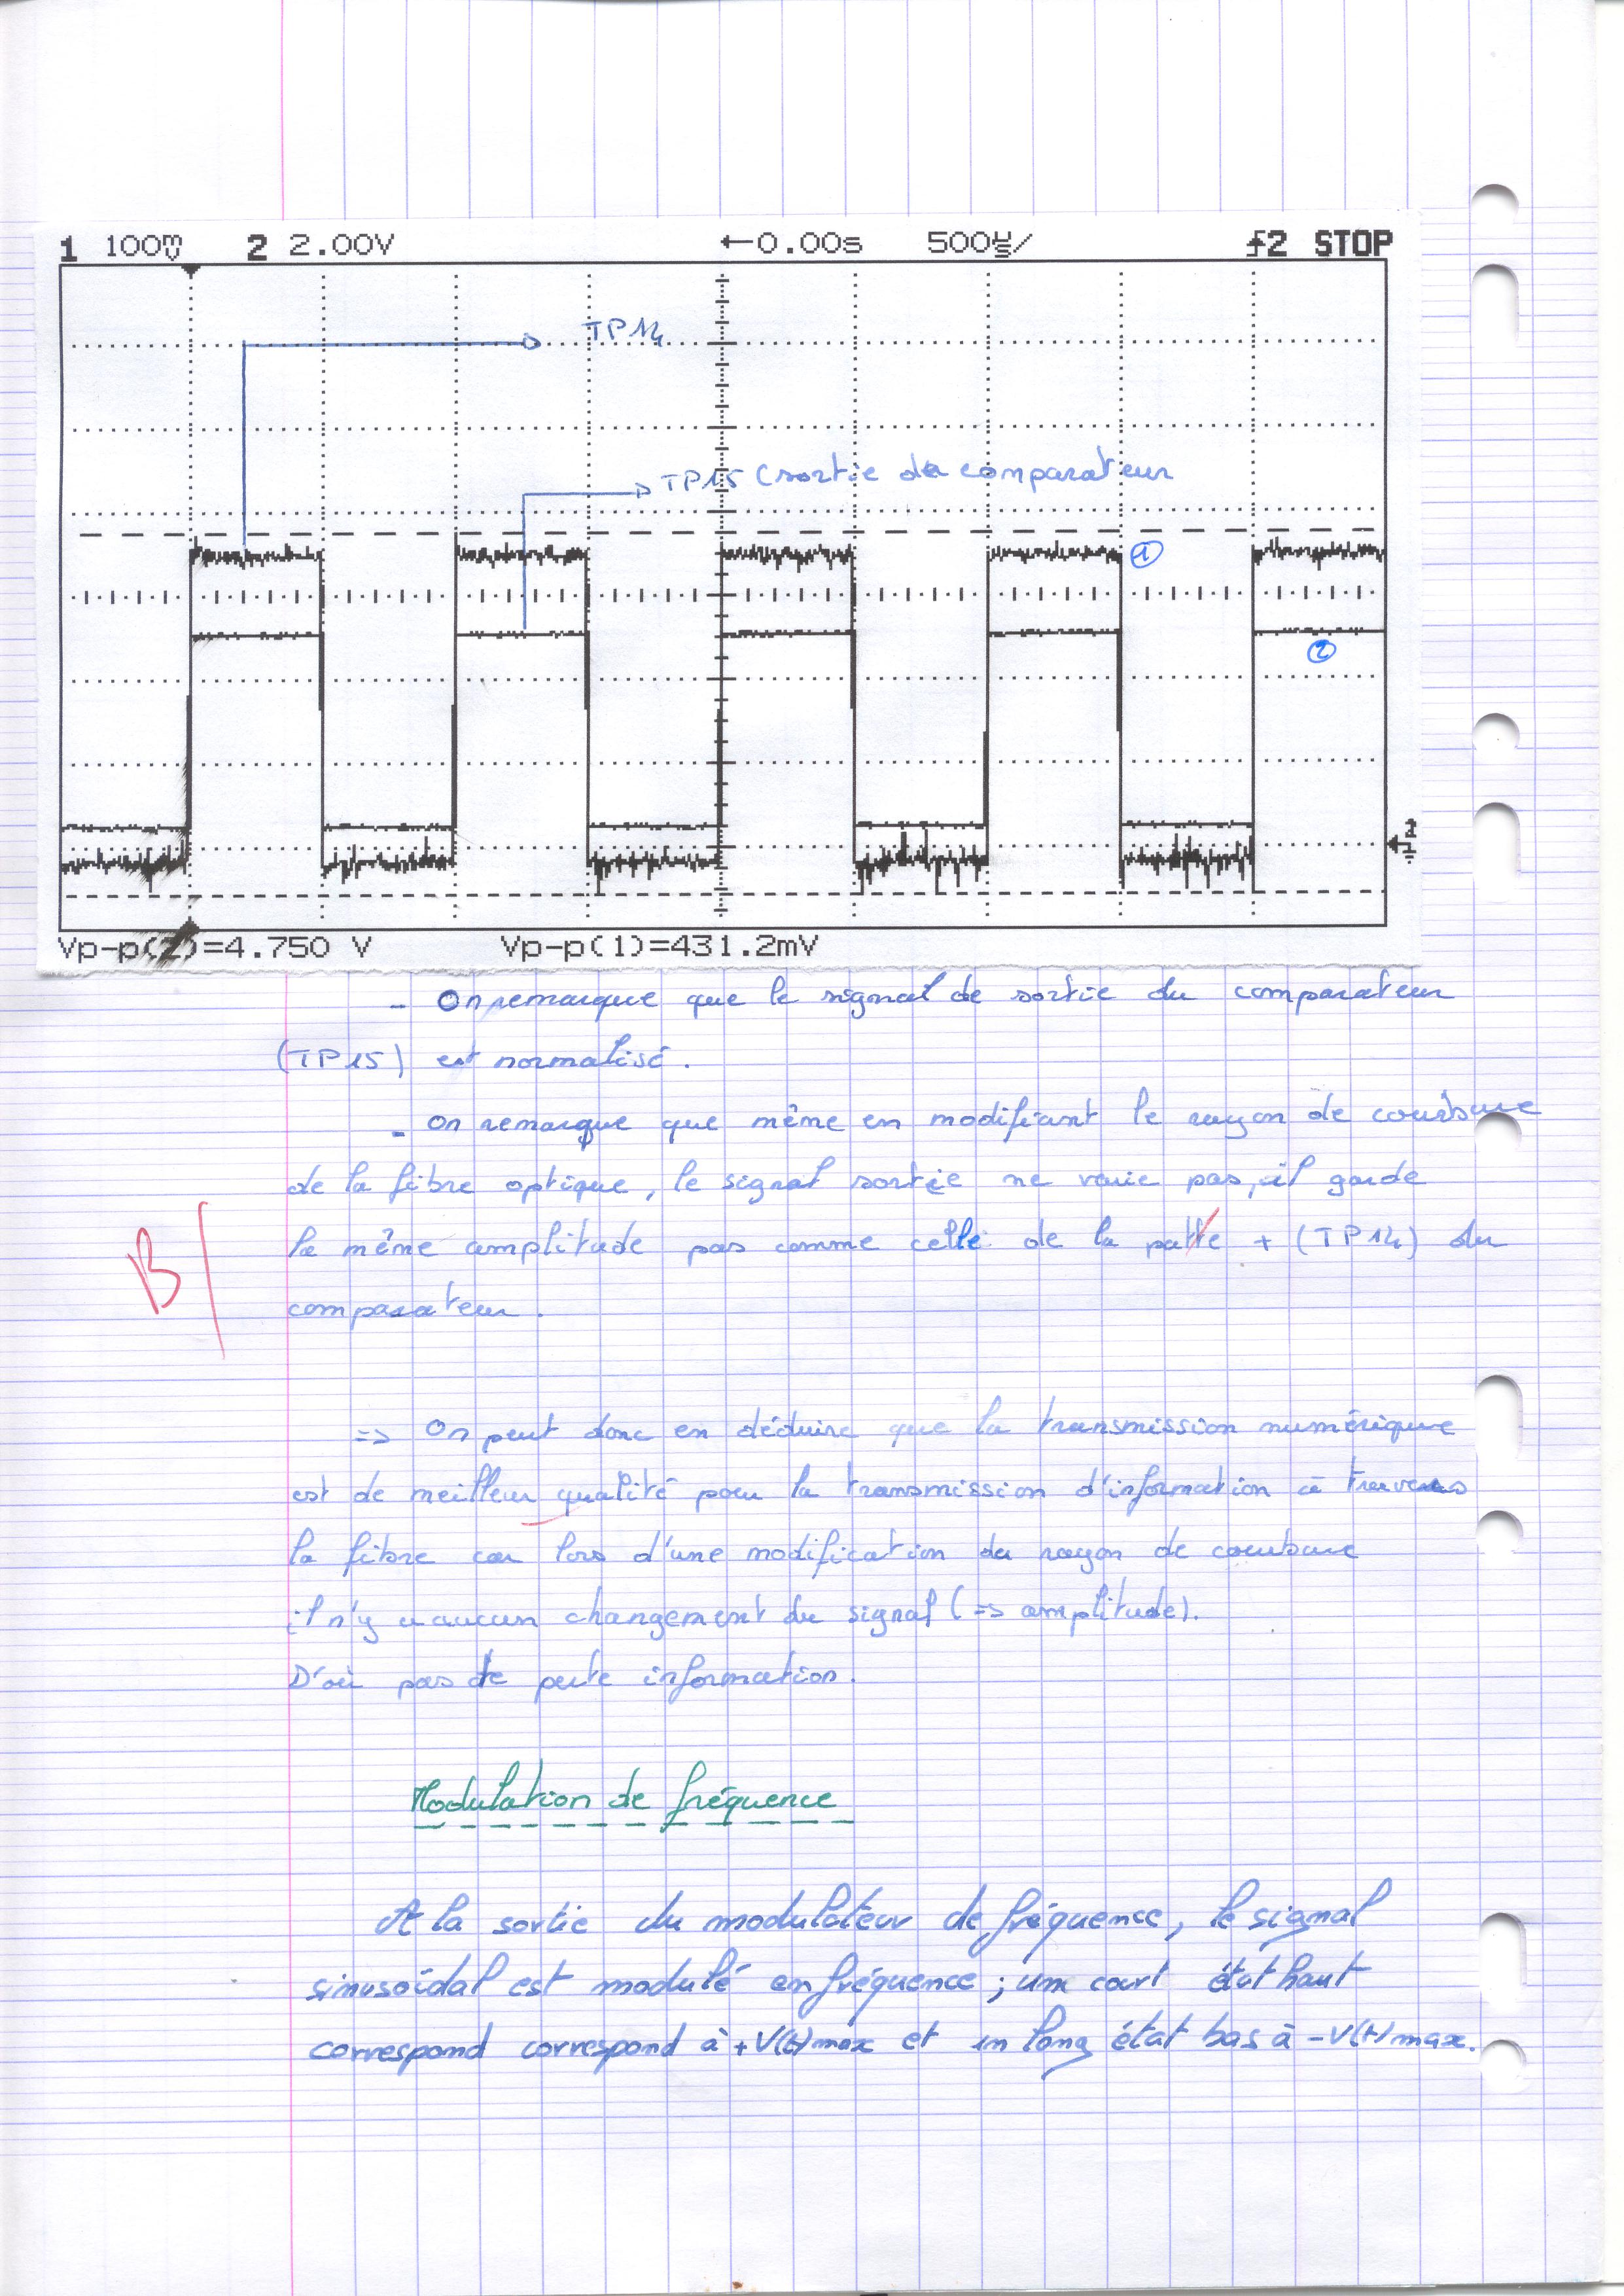 1 100mV 2 2.00V ←0.00s 500µs/ ⨍2 STOP
TP14
TP15 (sortie de comparateur
①
②
Vp-p(2)=4.750 V Vp-p(1)=431.2mV
- On remarque que le signal de sortie du comparateur
(TP15) est normalisé.
- On remarque que même en modifiant le rayon de courbure
de la fibre optique, le signal sortie ne varie pas, il garde
la même amplitude pas comme celle de la patte + (TP14) du
B/
comparateur.
=> On peut donc en déduire que la transmission numérique
est de meilleur qualité pour la transmission d'information à travers
la fibre car lors d'une modification du rayon de courbure
il n'y a aucun changement du signal (=> amplitude).
D'où pas de perte information.
Modulation de fréquence
A la sortie du modulateur de fréquence, le signal
sinusoïdal est modulé en fréquence ; un court état haut
correspond correspond à +V(t)max et un long état bas à -V(t)max.